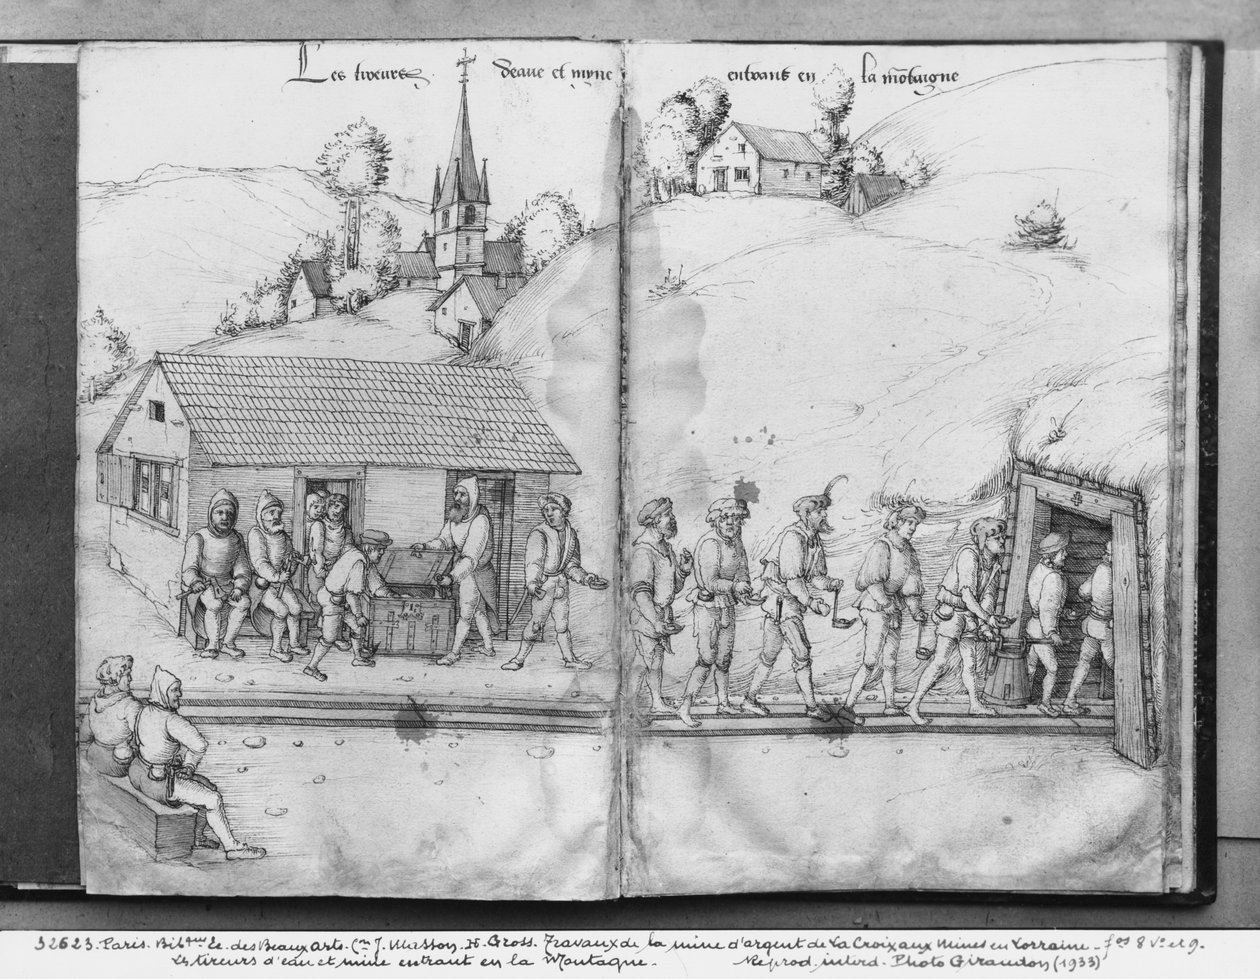 Les tireurs deaue et myne entrans en la mõtaigne
32623. Paris. Bib^que Ec. des Beaux Arts. (^on J. Masson. H. Gross. Travaux de la mine d'argent de La Croix aux Mines en Lorraine - f^os 8 v° et 9.
Les tireurs d'eau et mine entrant en la Montagne. - Reprod. interd. Photo Giraudon (1933)